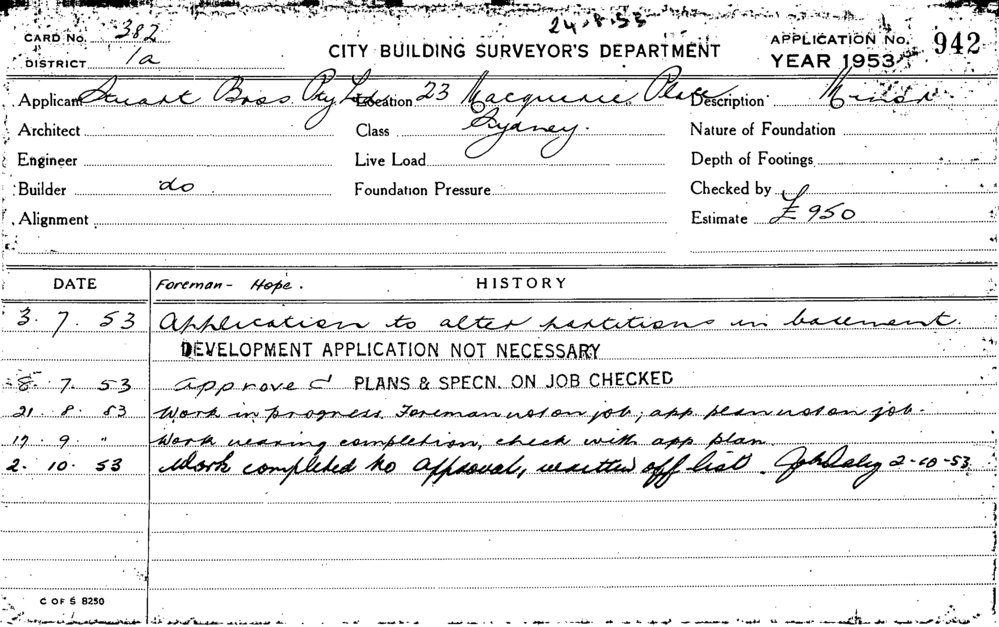 24.8.53
CARD No. 382
CITY BUILDING SURVEYOR'S DEPARTMENT
APPLICATION No. 942
DISTRICT 1a
YEAR 1953
Applicant Stuart Bros Pty Ltd Location 23 Macquarie Place Description Minor
Architect Class Sydney. Nature of Foundation
Engineer Live Load Depth of Footings
Builder do Foundation Pressure Checked by
Alignment Estimate £950
DATE Foreman - Hope. HISTORY
3. 7. 53 Application to alter partitions in basement.
DEVELOPMENT APPLICATION NOT NECESSARY
8. 7. 53 Approved PLANS & SPECN. ON JOB CHECKED
21. 8. 53 Work in progress, Foreman not on job, app. plan not on job.
17. 9. " Work nearing completion, check with app plan.
2. 10. 53 Work completed to approval, written off list. 2-10-53
C OF S 8250